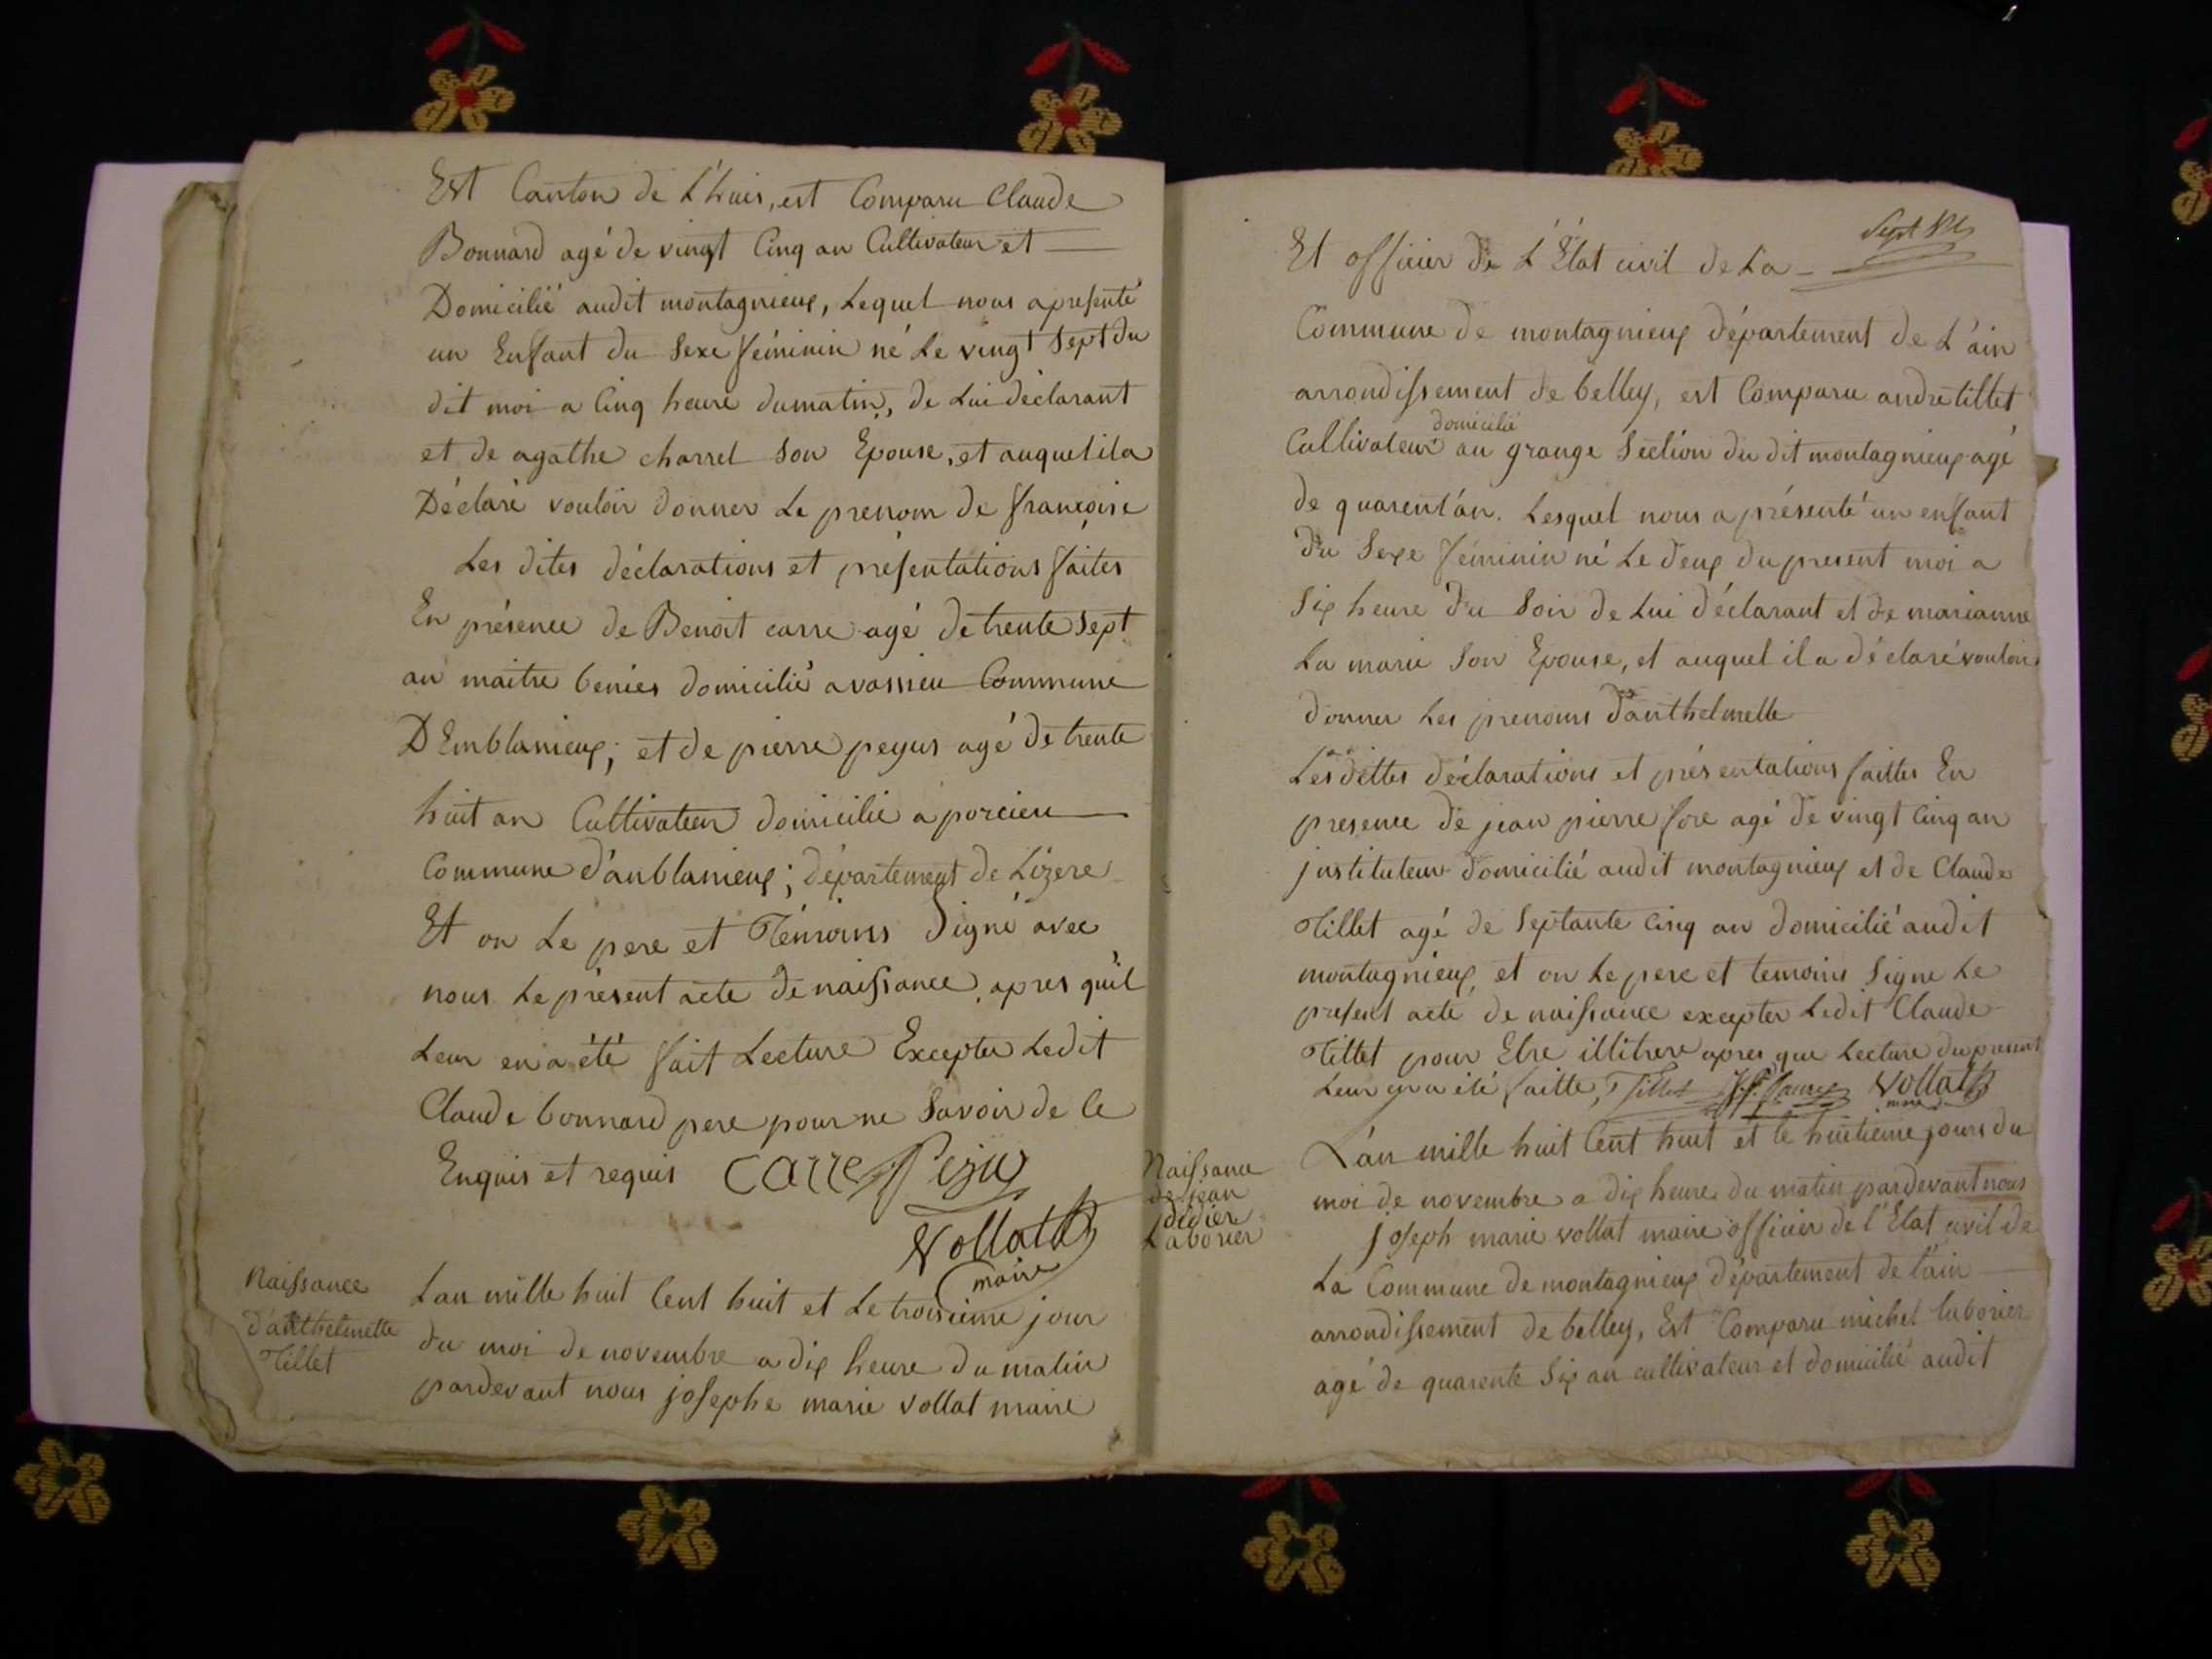 Est Canton de L'huis, est Comparu Claude
Bonnard agé de vingt Cinq an Cultivateur et
Domicilié audit montagnieux, Lequel nous apresenté
un Enfant du Sexe féminin né Le vingt Sept du
dit moi a Cinq heure dumatin, de Lui déclarant
et de agathe charrel Son Epouse, et auquel il a
Déclaré vouloir donner Le prenom de françoise
Les dites déclarations et présentations faites
En présence de Benoit carre agé de trente Sept
an maitre benier domicilié a vassieu Commune
D Emblanieux; et de pierre pezus agé de trente
huit an Cultivateur domicilié a porcieu
Commune d'anblanieux; département de Lizere
Et on Le pere et Témoins Signé avec
nous Le présent acte de naissance, apres qu'il
Leur en a été fait Lecture Excepter Ledit
Claude bonnard pere pour ne Savoir de Ce
Enquis et requis Carre Pezu
Vollat
maire
Naissance
d'anthelmette
Tillet
Lan mille huit Cent huit et Le troisieme jour
du moi de novembre a dix heure du matin
pardevant nous josephe marie vollat maire
Et officier de L'État civil de La
Commune de montagnieux département de L'ain
arrondissement de belley, est Comparu andre tillet
domicilié
Cultivateur au grange Section du dit montagnieux agé
de quarent'an. Lesquel nous a présenté un enfant
du Sexe féminin né Le deux du present moi a
Six heure du Soir de Lui déclarant et de marianne
La marie Son Epouse, et auquel il a déclaré vouloir
donner Les prenoms d'anthelmelle
Les dittes déclarations et présentations faittes En
presence de jean pierre fore agé de vingt Cinq an
justituteur domicilié audit montagnieux et de Claude
Tillet agé de Septante Cinq an domicilié audit
montagnieux, et on Le pere et temoins Signe Le
present acte de naissance excepter Ledit Claude
Tillet pour Etre illitrere apres que Lecture du present
Leur en a été faitte, Tillet Vollat
maire
Naissance
de jean
didier
Laborier
L'an mille huit Cent huit et le huitieme jours du
moi de novembre a dix heure du matin pardevant nous
joseph marie vollat maire officier de l'Etat civil de
La Commune de montagnieux département de l'ain
arrondissement de belley, Est Comparu michel laborier
agé de quarente Six an cultivateur et domicilié audit